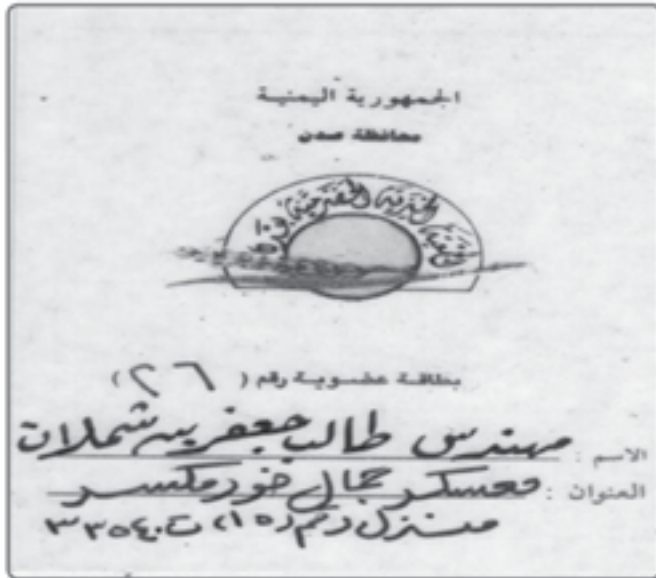 الجمهورية اليمنية
محافظة عدن
الخيرية
بطاقة عضوية رقم ( ٢٦ )
الاسم : مهندس طالب جعفر بن شملان
العنوان : معسكر جمال خورمكسر
منزل رقم (١٥) ت. ٣٣٥٤٠